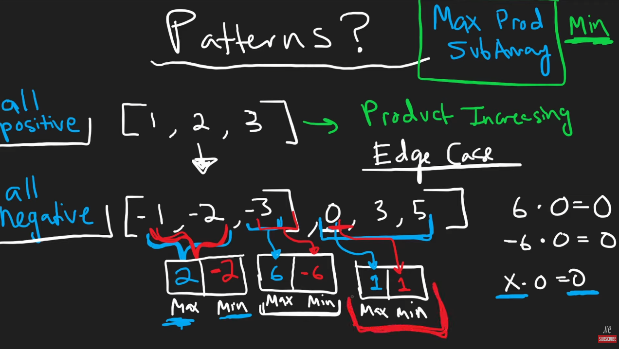 Patterns?
Max Prod
SubArray
Min
all
positive
[1, 2, 3] → Product Increasing
Edge Case
all
negative
[-1, -2, -3], 0, 3, 5]
6 · 0 = 0
-6 · 0 = 0
x · 0 = 0
2 -2
Max Min
6 -6
Max Min
1 1
Max Min
SUBSCRIBE